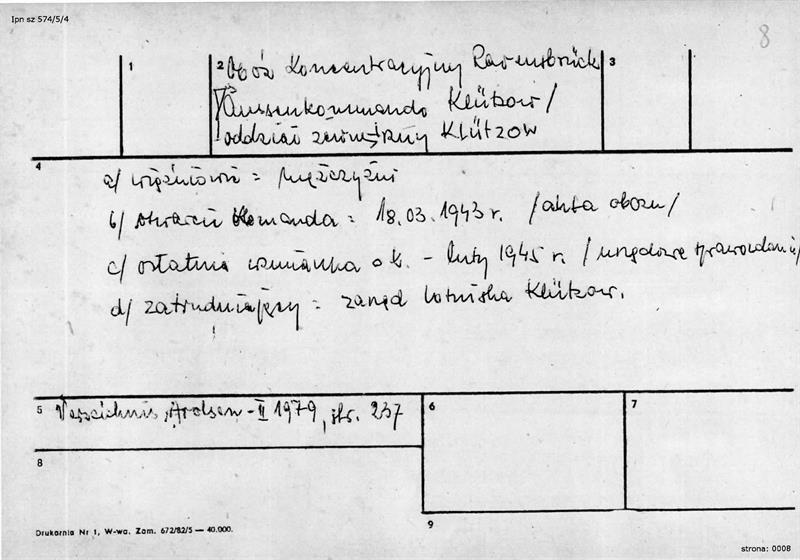 Ipn sz 574/5/4
8
1
2 Obóz Koncentracyjny Ravensbrück
Aussenkommando Klützow/
oddział zewnętrzny KLÜTZOW
3
4
a/ więźniowie = mężczyźni
b/ otwarcie Komanda = 18.03.1943 r. /akta obozu/
c/ ostatnia wzmianka o k. - luty 1945 r. /urzędowe sprawozdanie/
d/ zatrudniający = zarząd lotniska Klützow.
5 Verzeichnis, Arolsen - II 1979, str. 237
6
7
8
9
Drukarnia Nr 1, W-wa. Zam. 672/82/5 — 40.000.
strona: 0008